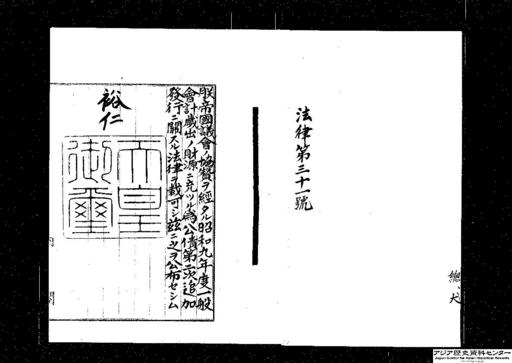 法律第三十一號
朕帝國議會ノ協贊ヲ經タル昭和九年度一般
會計歳出ノ財源ニ充ツル爲公債第二次追加
發行ニ關スル法律ヲ裁可シ茲ニ之ヲ公布セシム
裕仁
天皇御璽
アジア歴史資料センター
Japan Center for Asian Historical Records